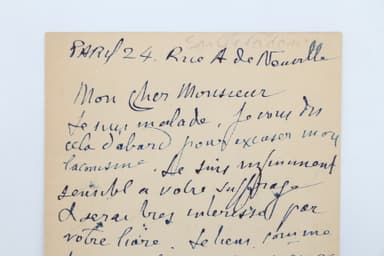 PARIS 24. Rue A de Neuville
Mon Cher Monsieur
Je suis malade, je vous dis
cela d'abord pour excuser mon
laconisme. Je suis infiniment
sensibl a votre suffrage
& serai tres interessé par
votre livre. Je tiens comme